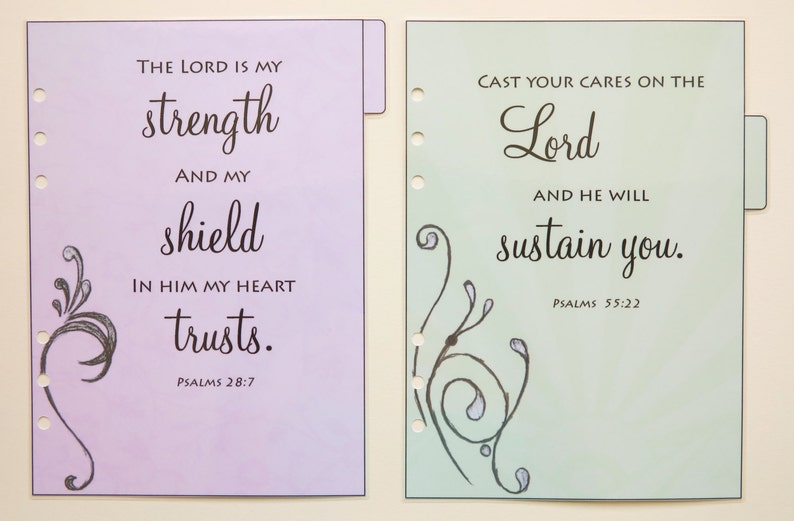 The Lord is my
strength
And my
shield
In him my heart
trusts.
Psalms 28:7
Cast your cares on the
Lord
and he will
sustain you.
Psalms 55:22